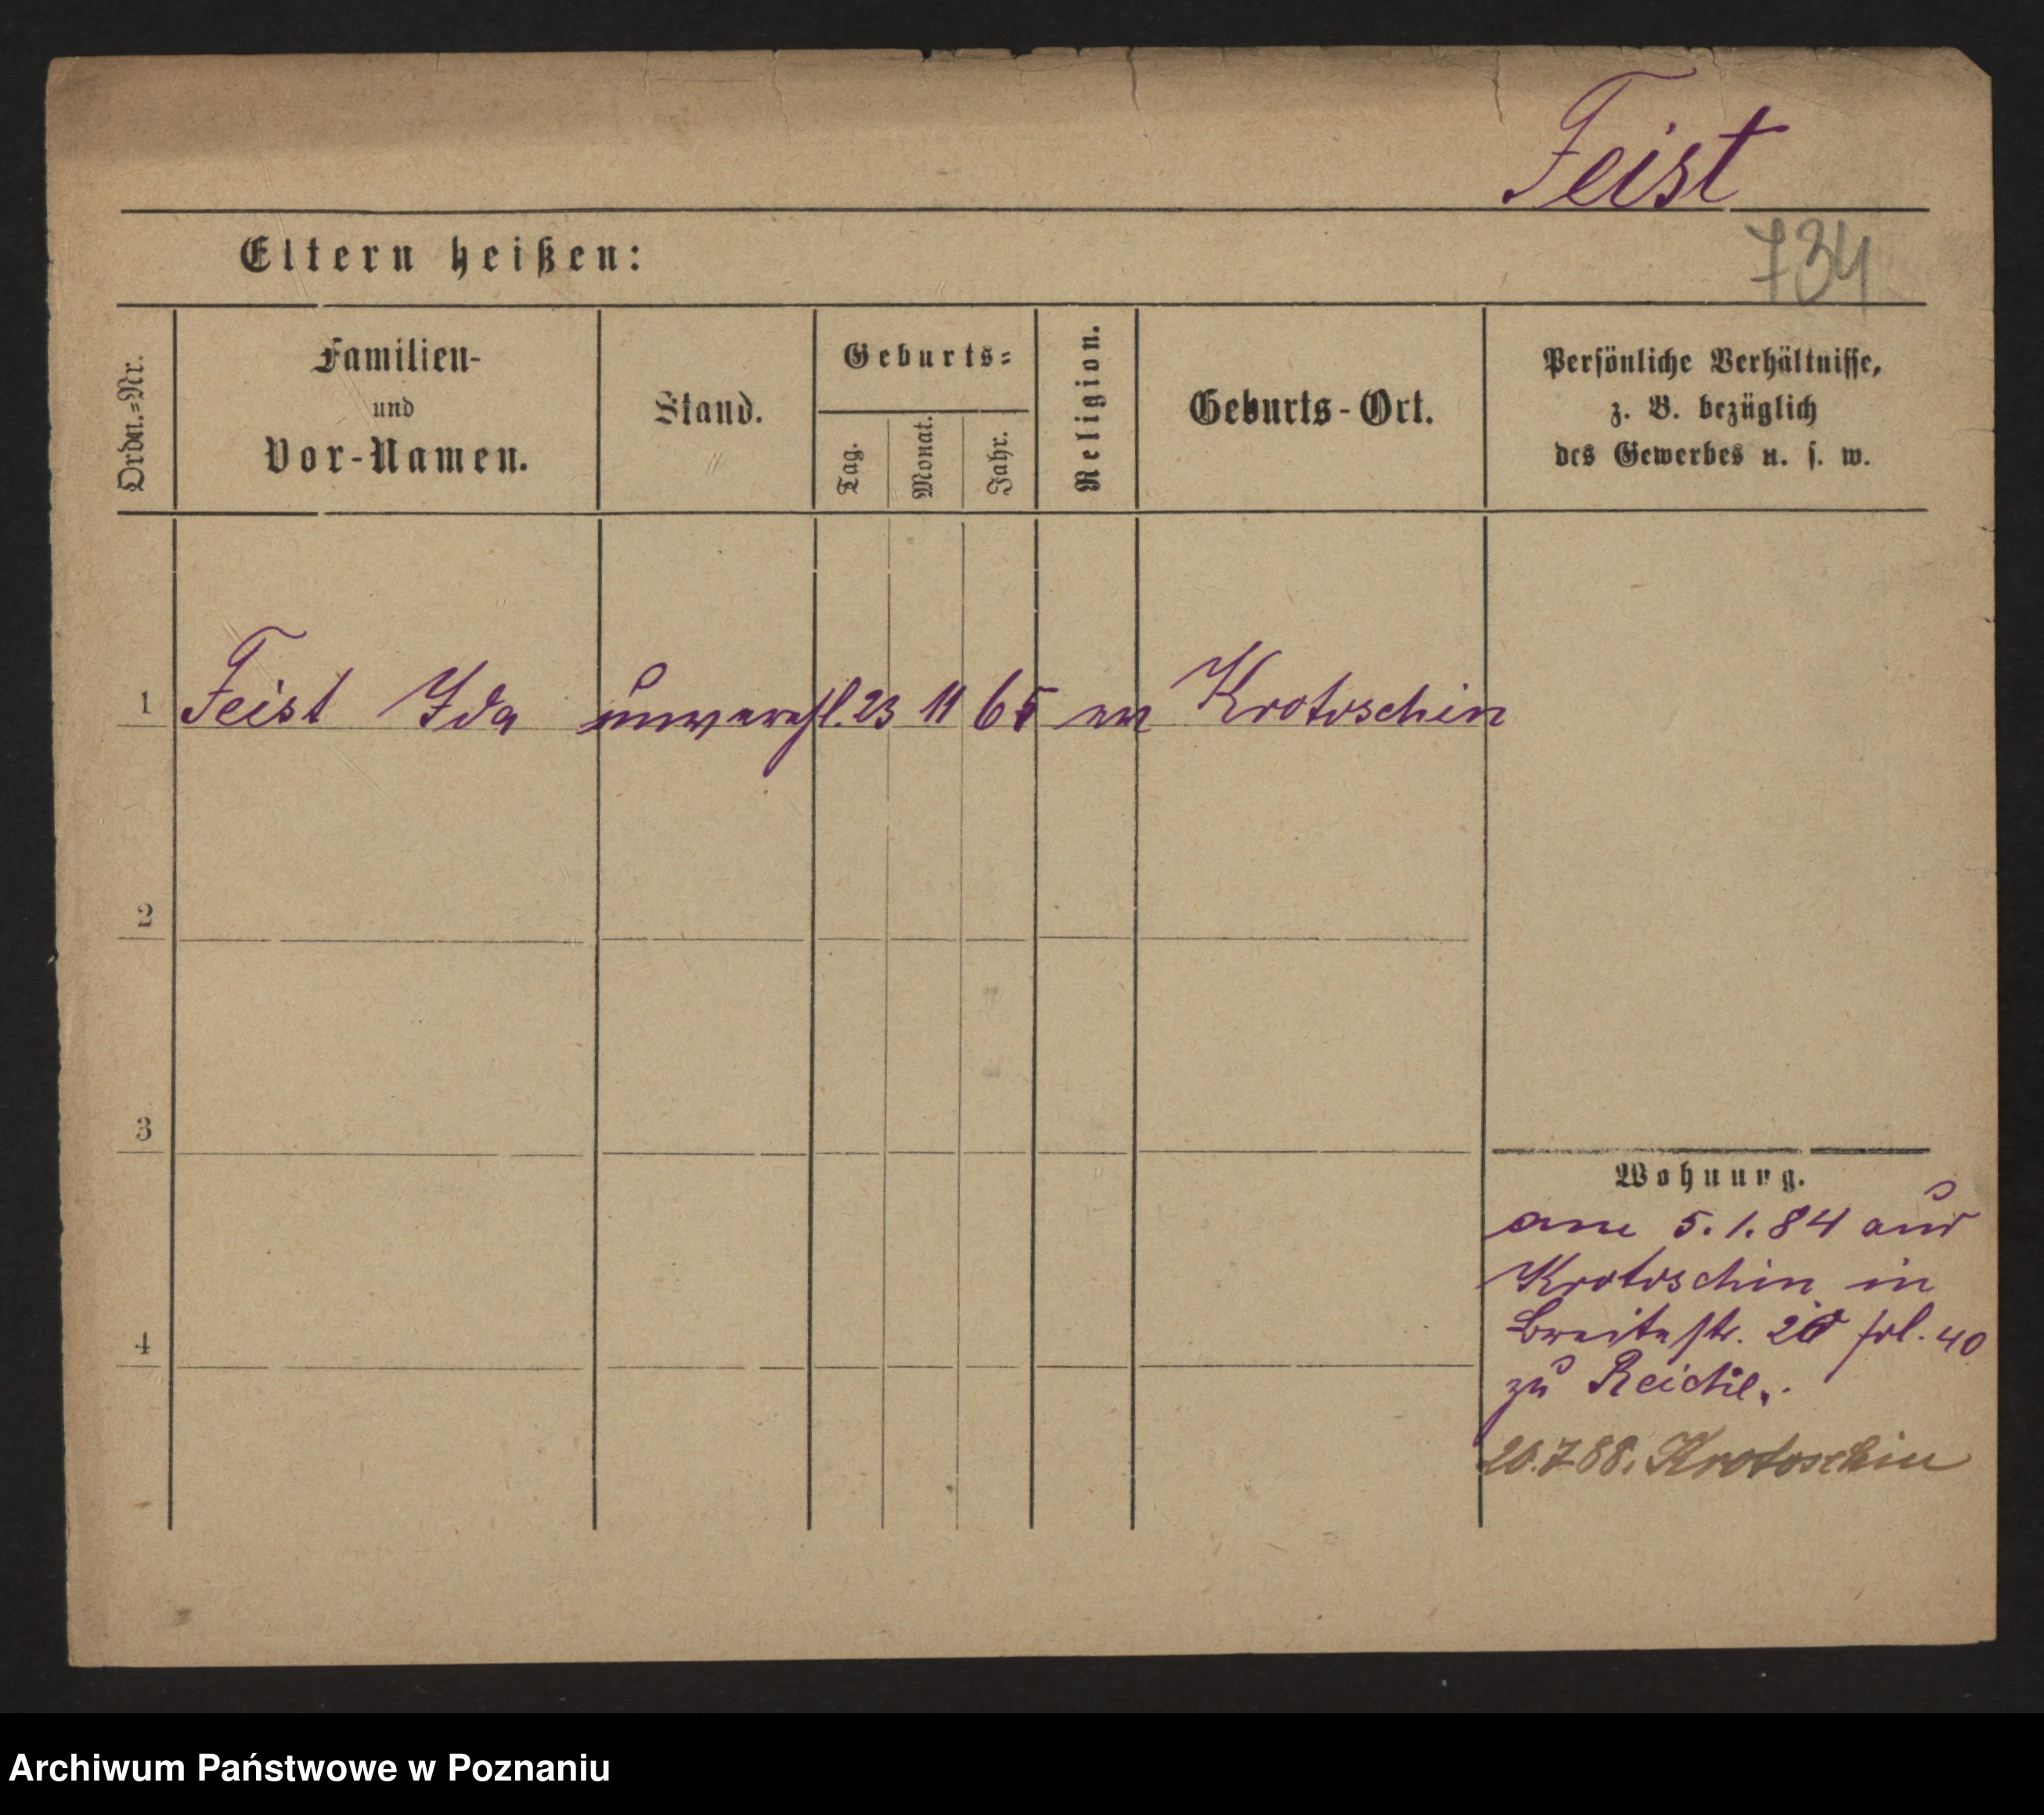 Feist
Eltern heißen:
734
Ordn.=Nr.
Familien-
und
Vor-Namen.
Stand.
Geburts=
Tag.
Monat.
Jahr.
Religion.
Geburts-Ort.
Persönliche Verhältnisse,
z. B. bezüglich
des Gewerbes u. s. w.
1 Feist Ida unverehl. 23 11 65 Krotoschin
2
3
Wohnung.
am 5.1.84 aus
Krotoschin in
Breitestr. fol. 40
4
zu
20.7.88. Krotoschin
Archiwum Państwowe w Poznaniu